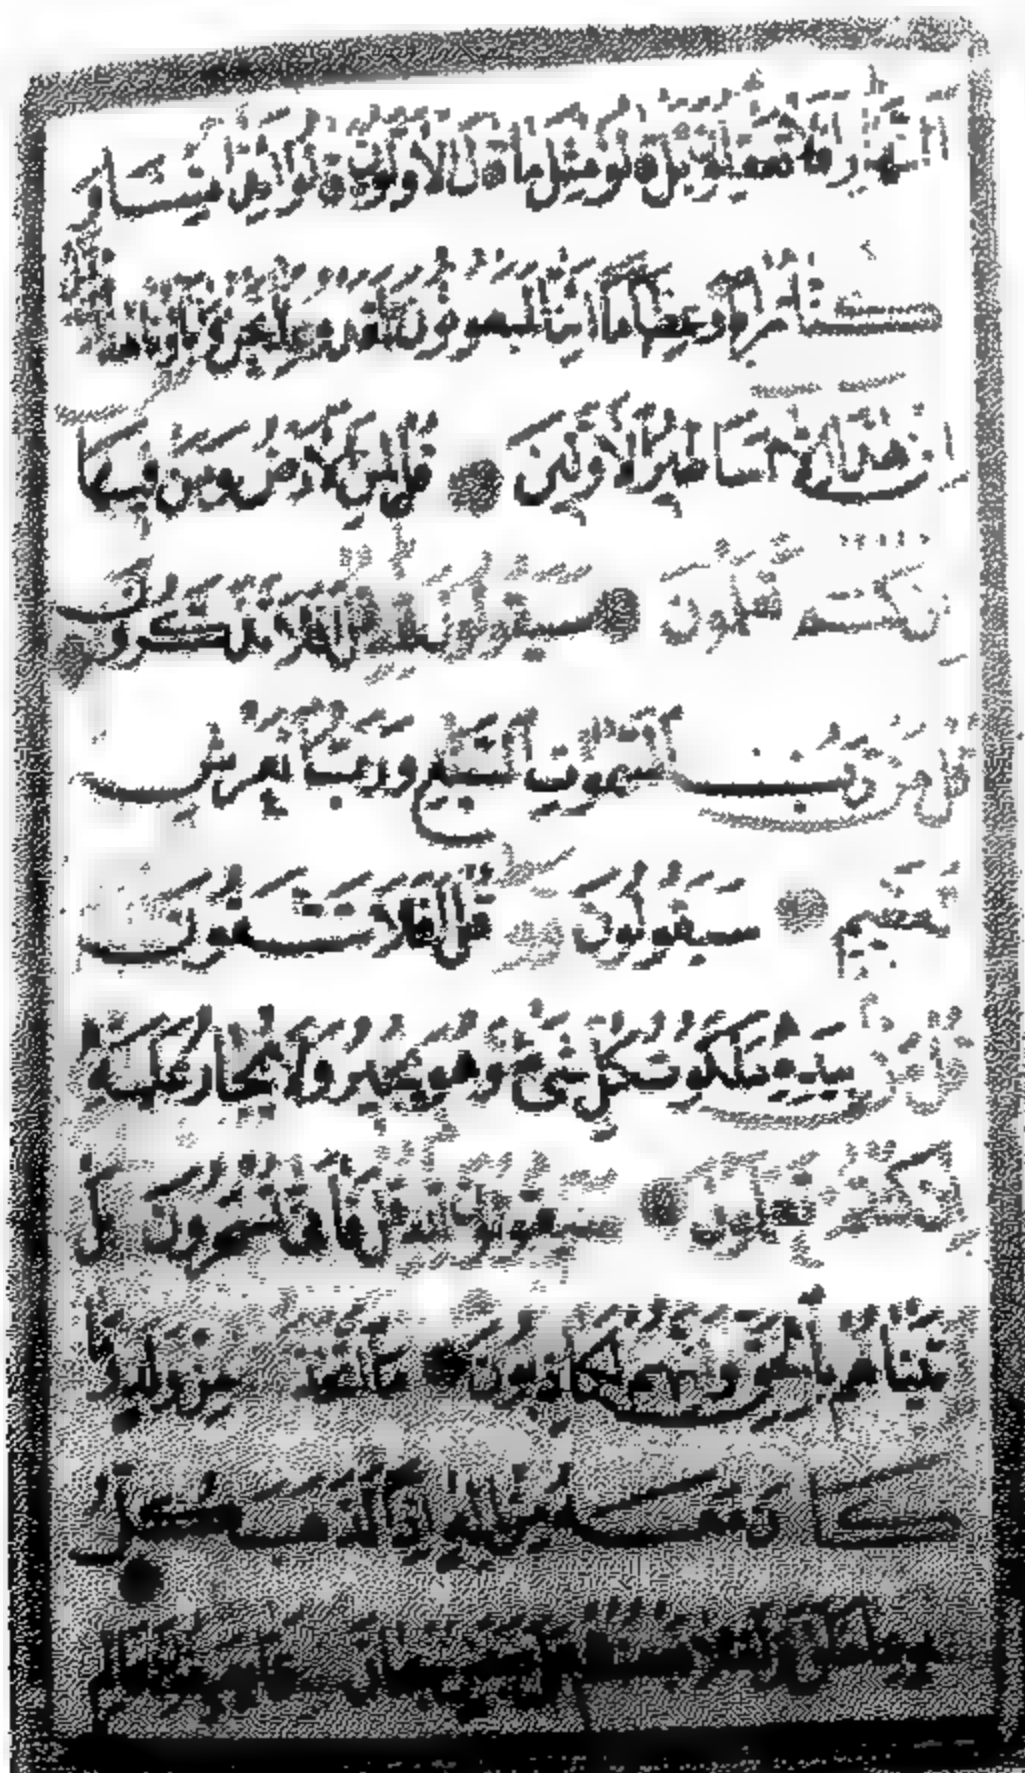 النهار افلا تعقلون بل قالوا مثل ما قال الاولون قالوا ائذا متنا و
كنا ترابا وعظاما ائنا لمبعوثون لقد وعدنا نحن واباؤنا هذا
ان هذا الا اساطير الاولين قل لمن الارض ومن فيها
ان كنتم تعلمون سيقولون لله قل افلا تذكرون
قل من رب السموات السبع ورب العرش
العظيم سيقولون لله قل افلا تتقون
قل من بيده ملكوت كل شيء وهو يجير ولا يجار عليه
ان كنتم تعلمون سيقولون لله قل فانى تسحرون بل
اتيناهم بالحق وانهم لكاذبون ما اتخذ من ولد وما
كان معه من اله اذا لذهب كل